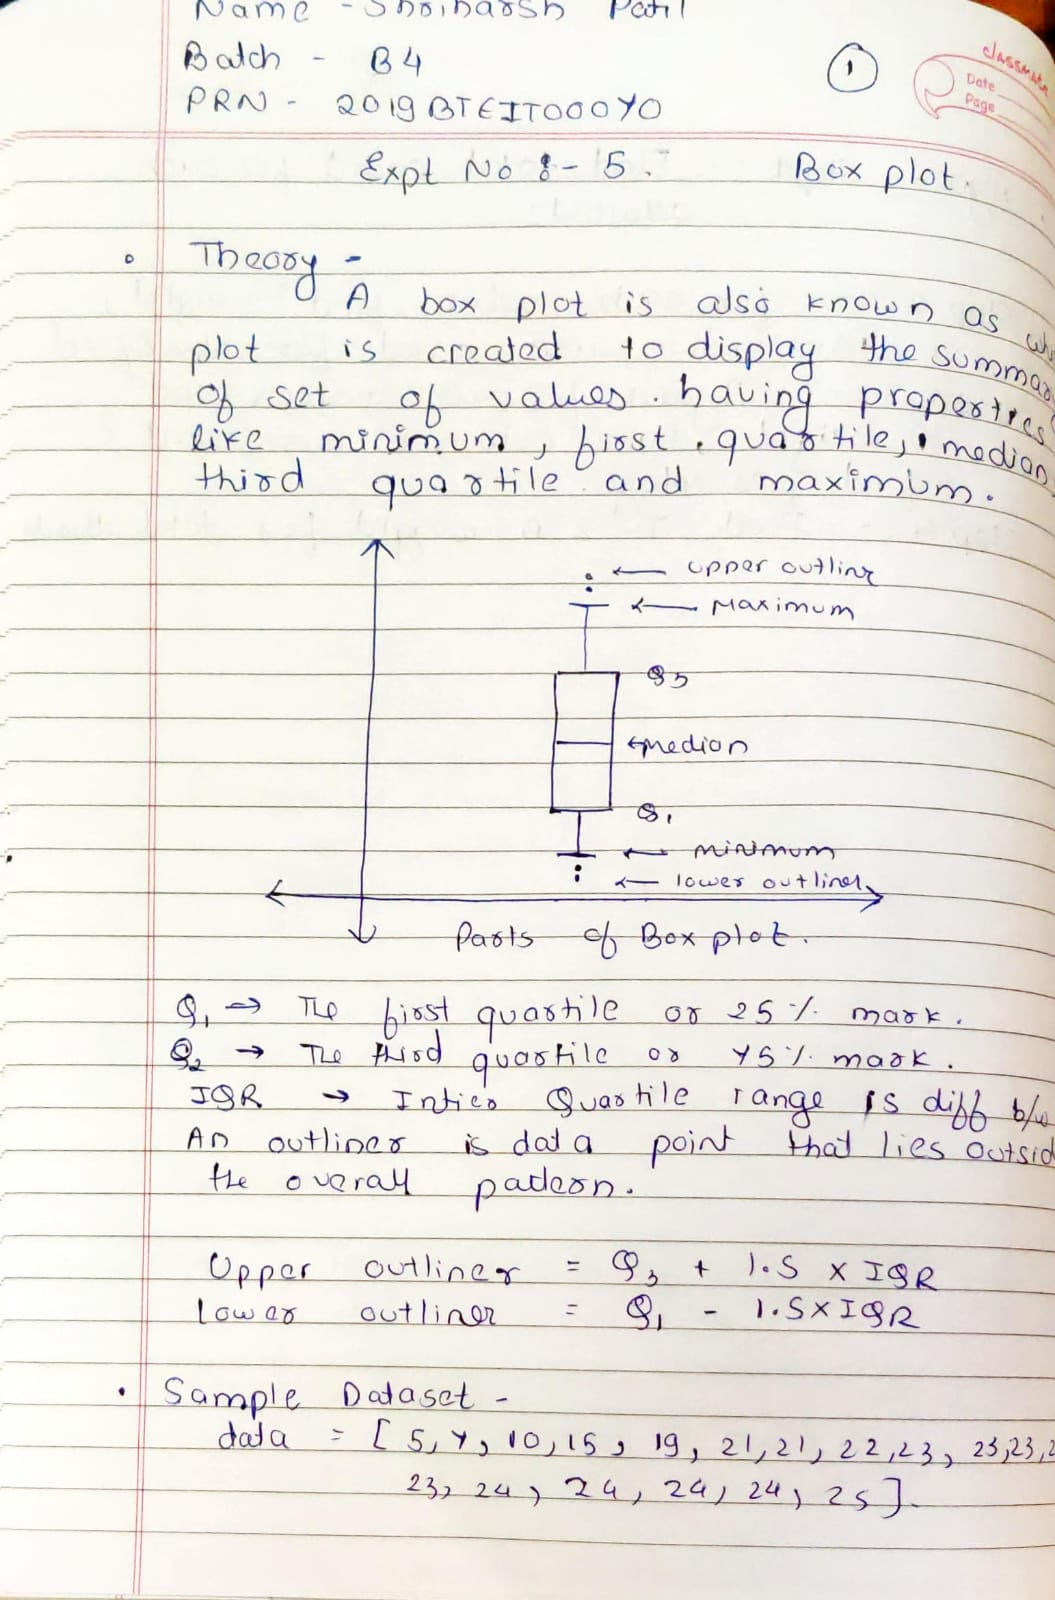 Name - Shriharsh Patil
Batch - B4
PRN - 2019BTEIT00070
1
classmate
Date
Page
Expt No :- 5. Box plot.
Theory -
A box plot is also known as
plot is created to display the summar
of set of values. having propertres
like minimum, first quartile, median
third quartile and maximum.
upper outlinr
Maximum
Q3
median
Q1
minimum
lower outliner
Parts of Box plot.
Q1 → The first quartile or 25 % mark.
Q2 → The third quartile or 75 % mark.
IQR → Inticr Quartile range is diff b/w
An outliner is data point that lies outsid
the overall pattern.
Upper outliner = Q3 + 1.5 X IQR
Lower outliner = Q1 - 1.5 X IQR
Sample Dataset -
data = [ 5, 7, 10, 15, 19, 21, 21, 22, 23, 23, 23, 2
23, 24, 24, 24, 24, 25 ].